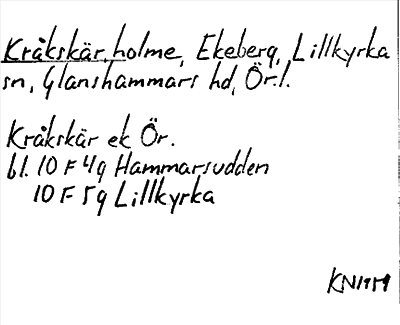 Kråkskär, holme, Ekeberg, Lillkyrka
sn, Glanshammars hd, Ör.l.
Kråkskär ek Ör.
bl. 10 F 4g Hammarsudden
10 F 5g Lillkyrka